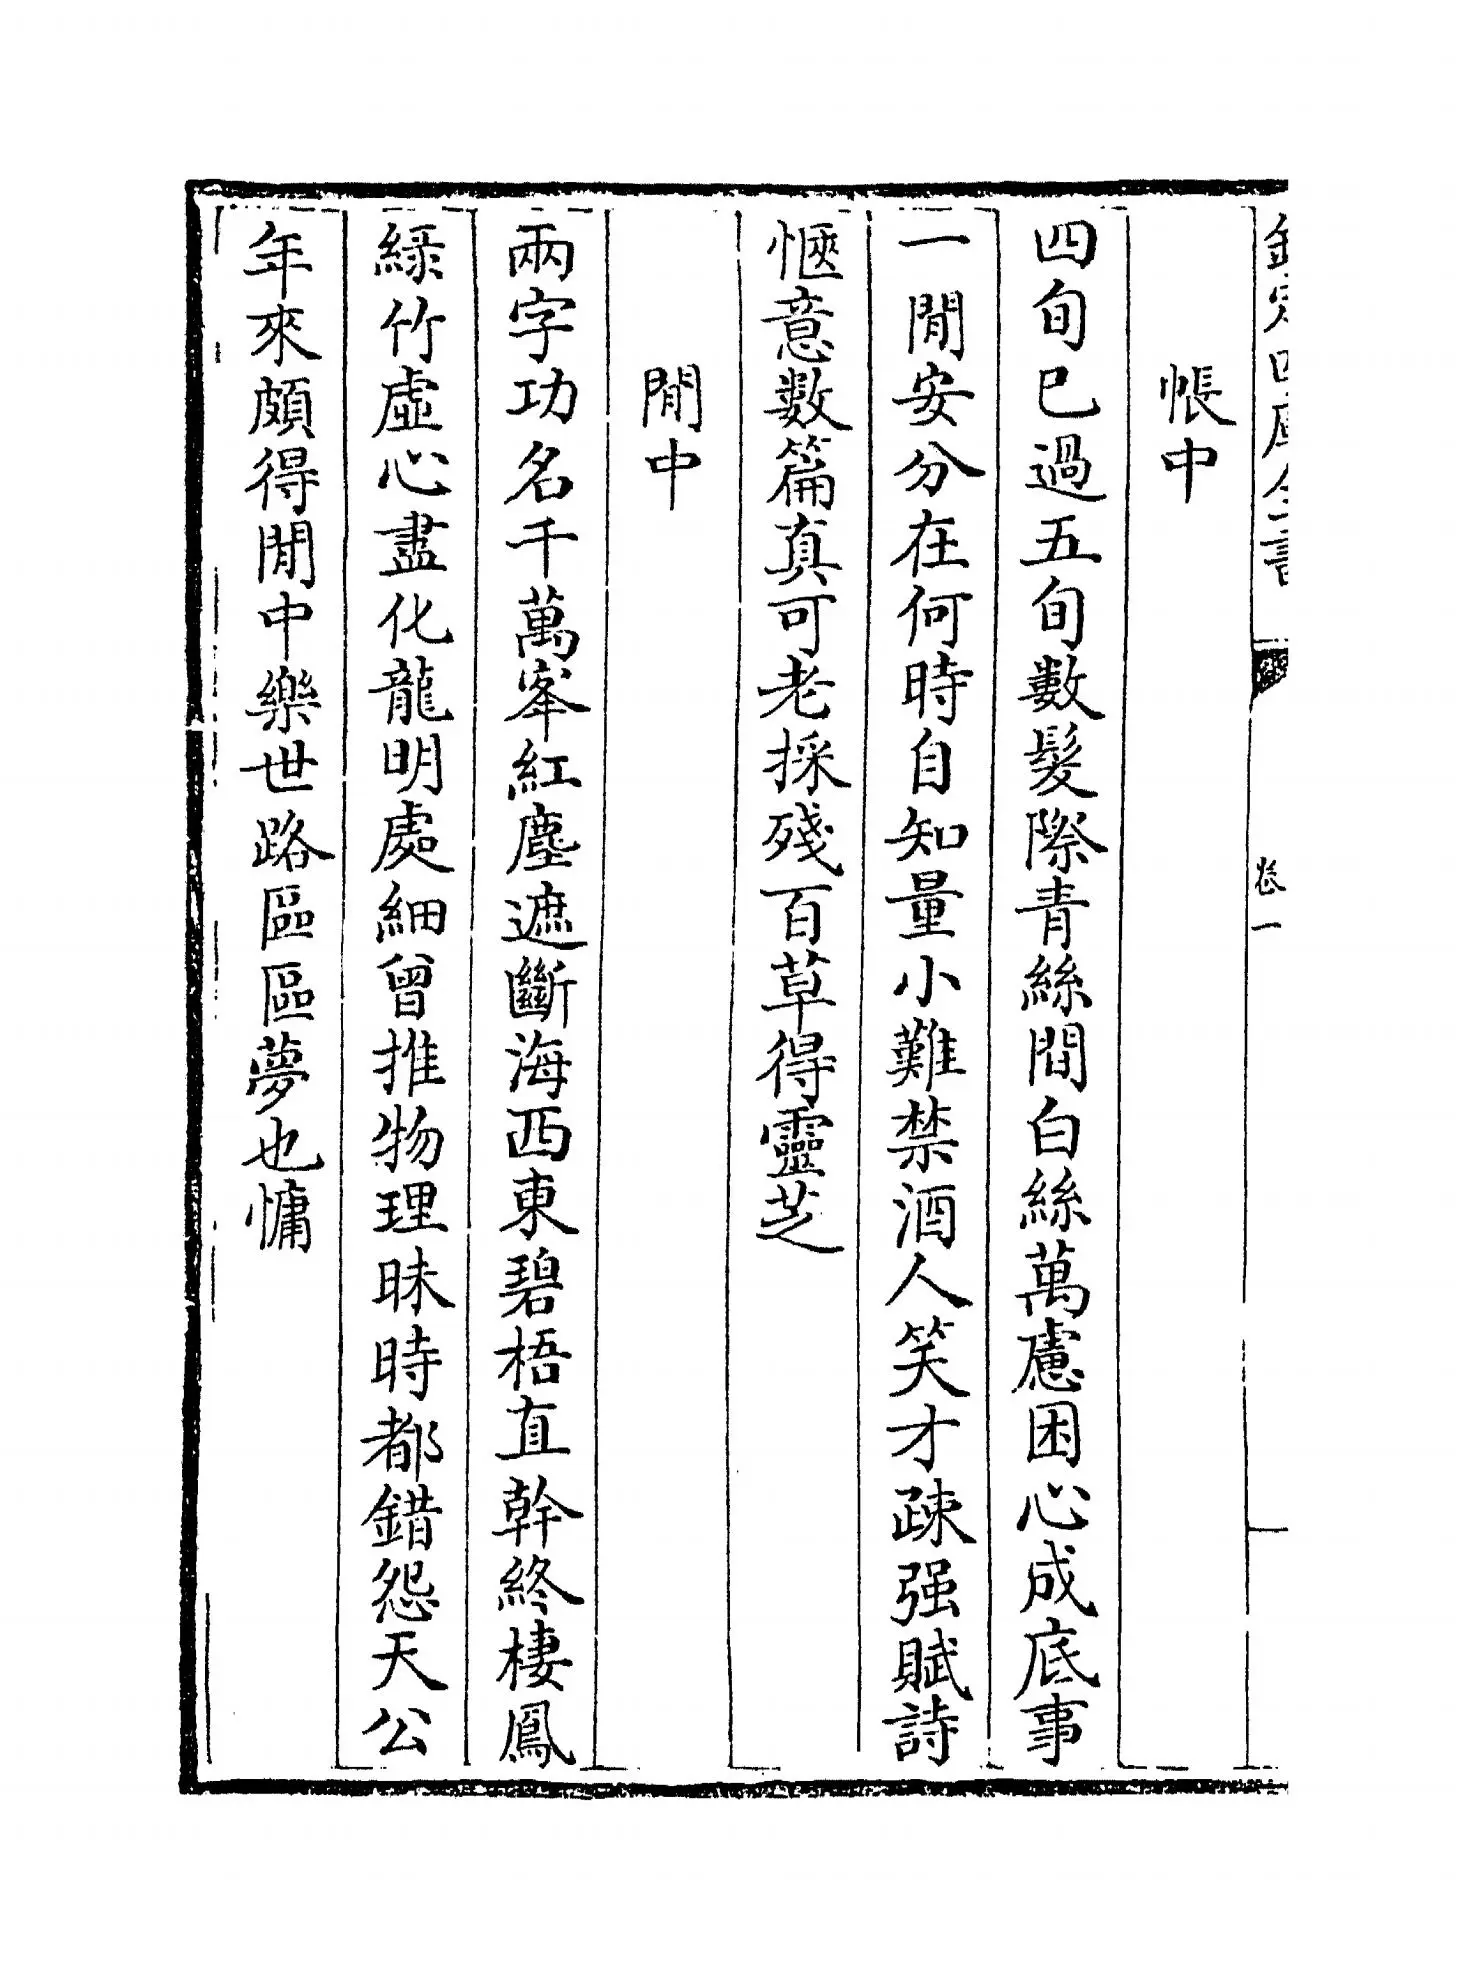 欽定四庫全書
卷一
帳中
四旬已過五旬數髮際青絲間白絲萬慮困心成底事
一閒安分在何時自知量小難禁酒人笑才疎强賦詩
愜意數篇真可老採殘百草得靈芝
閒中
兩字功名千萬峯紅塵遮斷海西東碧梧直幹終棲鳳
綠竹虛心盡化龍明處細曾推物理昧時都錯怨天公
年來頗得閒中樂世路區區夢也慵